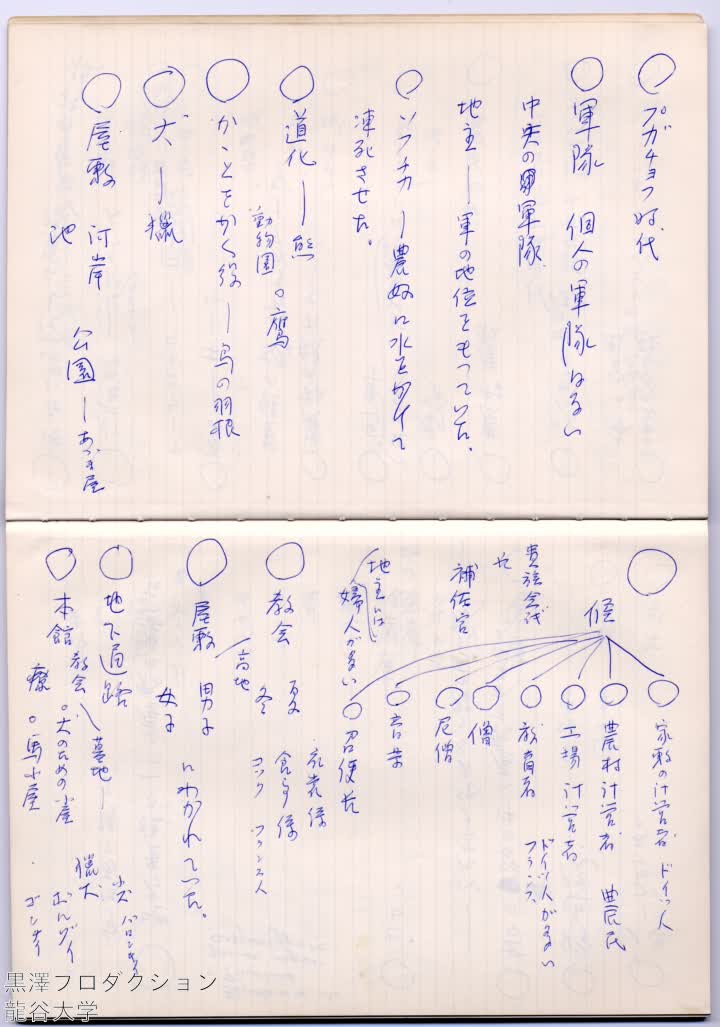 プガチョフ時代
軍隊 個人の軍隊はない
中央の軍隊
地主―軍の地位をもっていた。
ソフカ―農奴に水をかけて
凍死させた。
道化―熊
動物園 ○鷹
かゝとをかく役―鳥の羽根
犬―猟
屋敷 河岸
池 公園―あづま屋
貴族会議
補佐官
家敷の計営者 ドイツ人
農村計営者 農民
工場 計営者
教育者 ドイツ人が多い
フランス
僧
尼僧
音楽
召使た
地主には
婦人が多い
教会 夏
冬
衣裳係
食事係
コック フランス人
屋敷 男子
女子 にわかれていた。
高地
地下通路
教会―墓地―
本館 ○犬のための小屋
○馬小屋
猟犬
ボルゾイ
ゴンチイ
黒澤プロダクション
龍谷大学